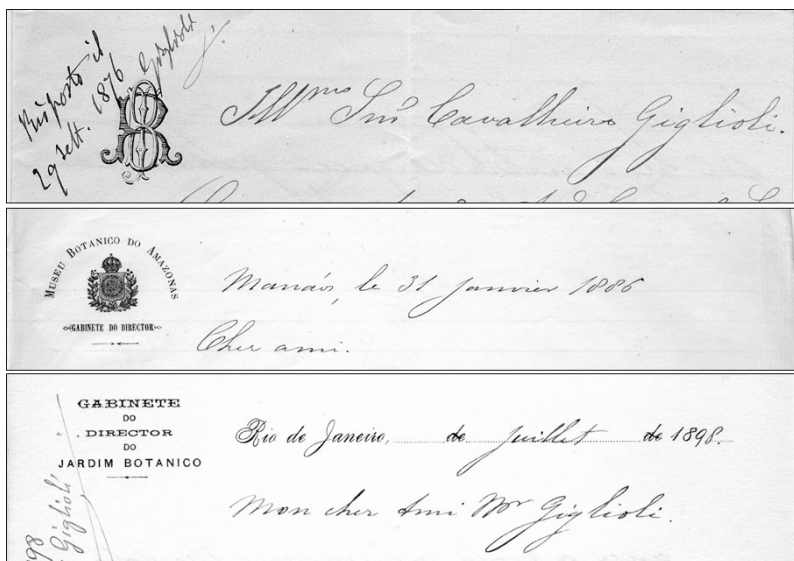 Risposto il
29 sett. 1876. Giglioli
BR
Ill^mo Snr Cavalheiro Giglioli.
MUSEU BOTANICO DO AMAZONAS
GABINETE DO DIRECTOR
Manáos, le 31 Janvier 1886
Cher ami.
GABINETE
DO
DIRECTOR
DO
JARDIM BOTANICO
Rio de Janeiro, de juillet de 1898.
Mon cher Ami Mr Giglioli.
98
Giglioli